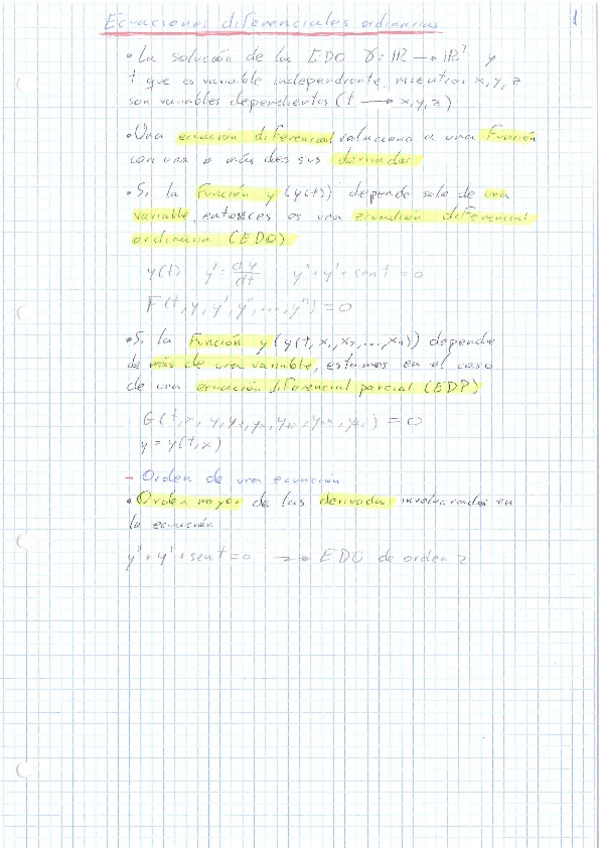 Ecuaciones diferenciales ordinarias
1
• La solución de las EDO γ: ℝ → ℝ³ y
t que es variable independiente, mientras x, y, z
son variables dependientes (t → x, y, z)
• Una ecuación diferencial relaciona a una función
con una o más des sus derivadas
• Si la función y (y(t)) depende solo de una
variable, entonces es una ecuación diferencial
ordinaria (EDO)
y(t) y' = dy/dt y'' + y' + sen t = 0
F(t, y, y', y'', ..., yⁿ) = 0
• Si la función y (y(t, x₁, x₂, ..., xₙ)) depende
de más de una variable, estamos en el caso
de una ecuación diferencial parcial (EDP)
y = y(t, x)
- Orden de una ecuación
• Orden mayor de las derivadas involucradas en
la ecuación
y'' + y' + sen t = 0 → EDO de orden 2